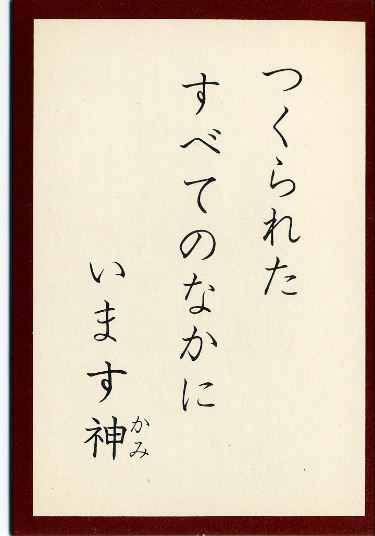 つくられた
すべてのなかに
います神
かみ